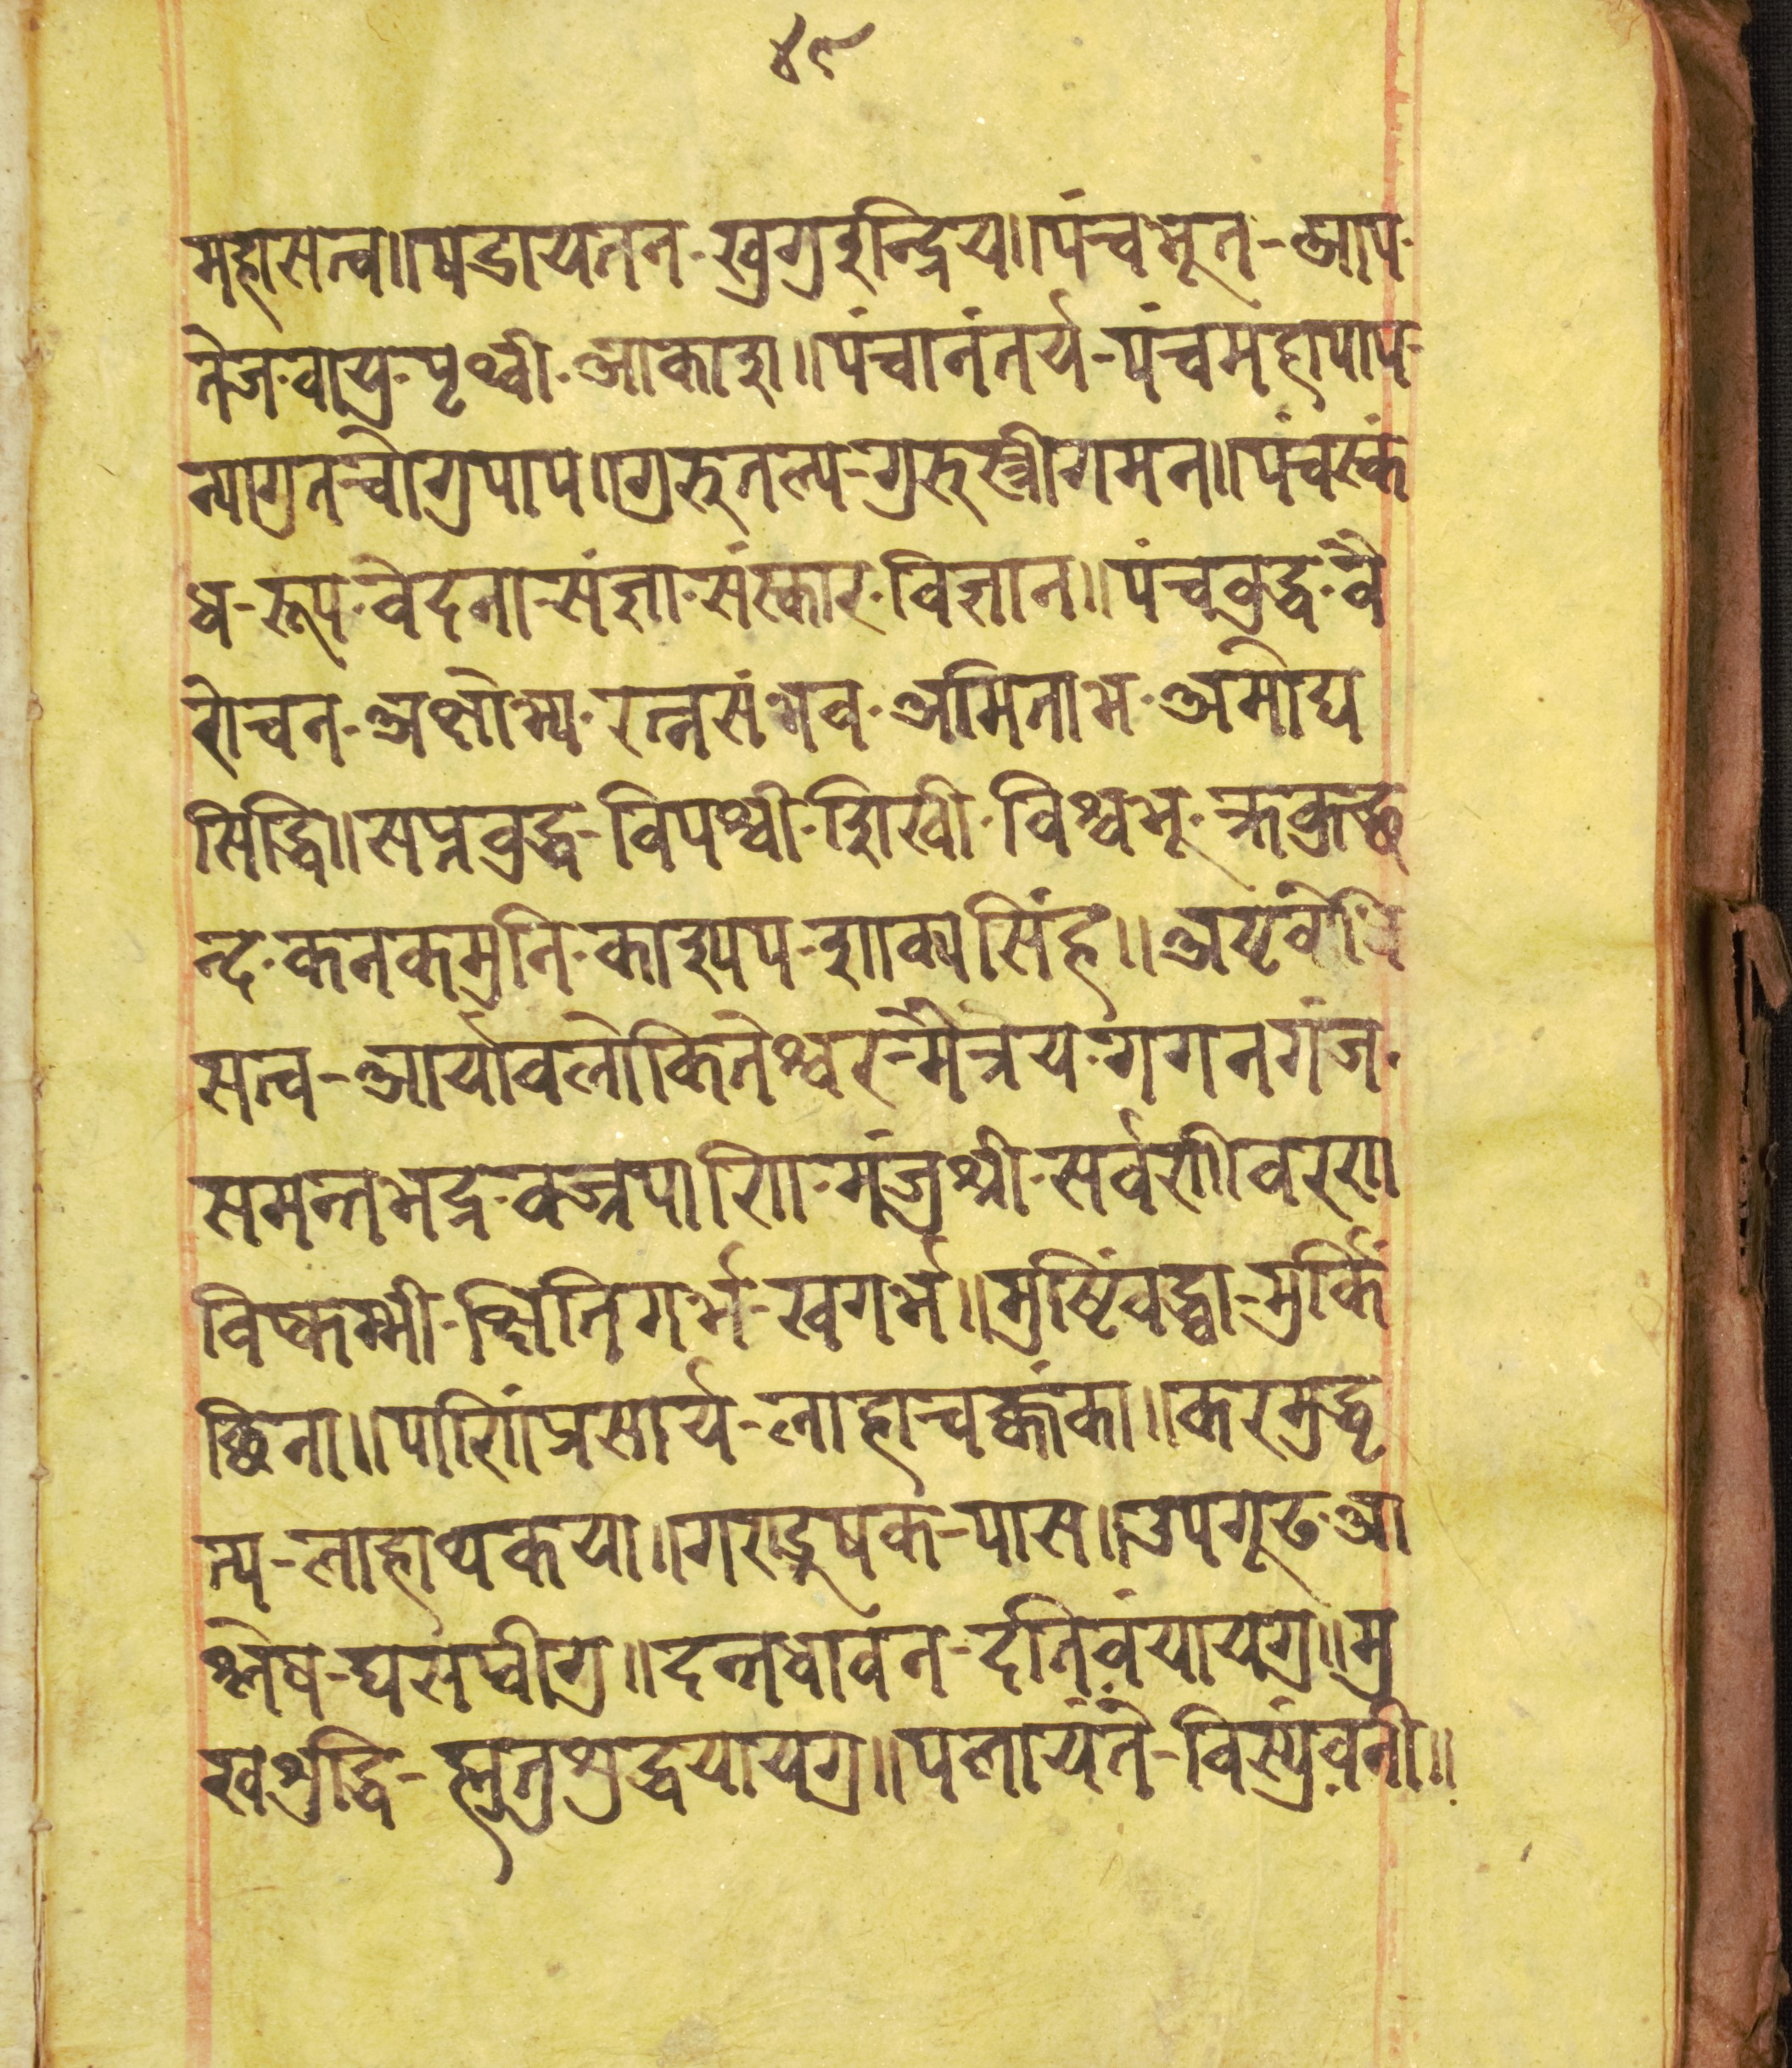 ४९
महासत्व॥षड्रायतन-खुगुइन्द्रिय॥पंचभूत-आप-
तेज-वायु-पृथ्वी-आकाश॥पंचानंतर्य-पंचमहापाप-
न्यागुतच्चोगुपाप॥गुरुतल्प-गुरुस्त्रीगमन॥पंचस्कं
ध-रूप-वेदना-संज्ञा-संस्कार-विज्ञान॥पंचबुद्ध-वै
रोचन-अक्षोभ्य-रत्नसंभव-अमिताभ-अमोघ
सिद्धि॥सप्तबुद्ध-विपश्वी-शिखी-विश्वभू-क्रकुच्छ
न्द-कनकमुनि-काश्यप-शाक्यसिंह॥अष्टबोधि
सत्व-आर्यावलोकितेश्वर-मैत्रेय-गगनगंज-
समन्तभद्र-वज्रपाणि-मंजुश्री-सर्वणीवरण
विष्कम्भी-क्षितिगर्भ-खगर्भ॥मुष्टिंवद्ध्वा-मुर्किं
छिना॥पाणिंप्रसार्य-लाहाचक्कंका॥करमुद्धृ
त्य-लाहाथकया॥गराडुषक-पास॥उपगूढ-आ
श्लेष-घसप्वीगु॥दन्तधावन-दतिवंयायगु॥मु
खशुद्धि-ह्मुतुशुद्धयायगु॥पलायंतै-विस्युंवनी॥